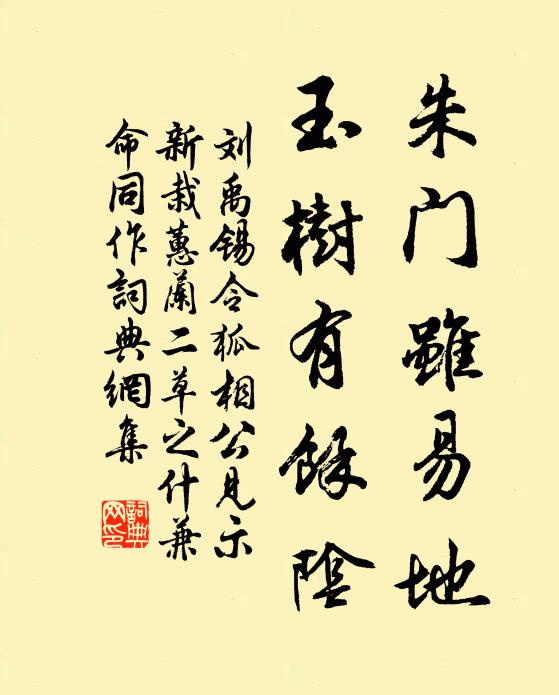 朱门雖易地
玉樹有餘陰
刘禹锡令狐相公見示
新栽蕙蘭二草之什兼
命同作詞典網集
詞典网印